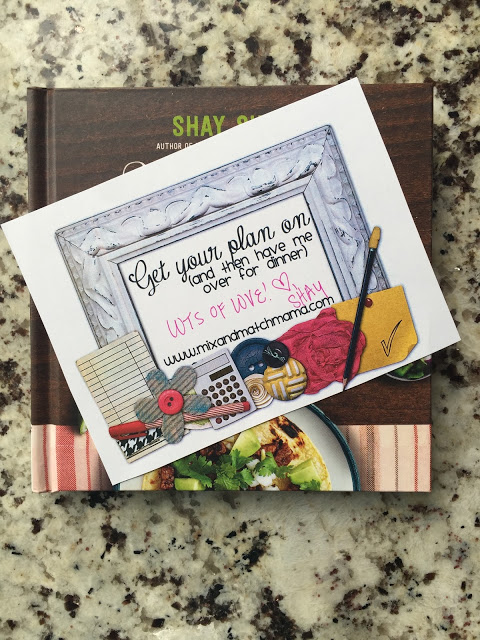 SHAY
AUTHOR OF
Get your plan on
(and then have me
over for dinner)
LOTS OF LOVE!
SHAY
www.mixandmatchmama.com